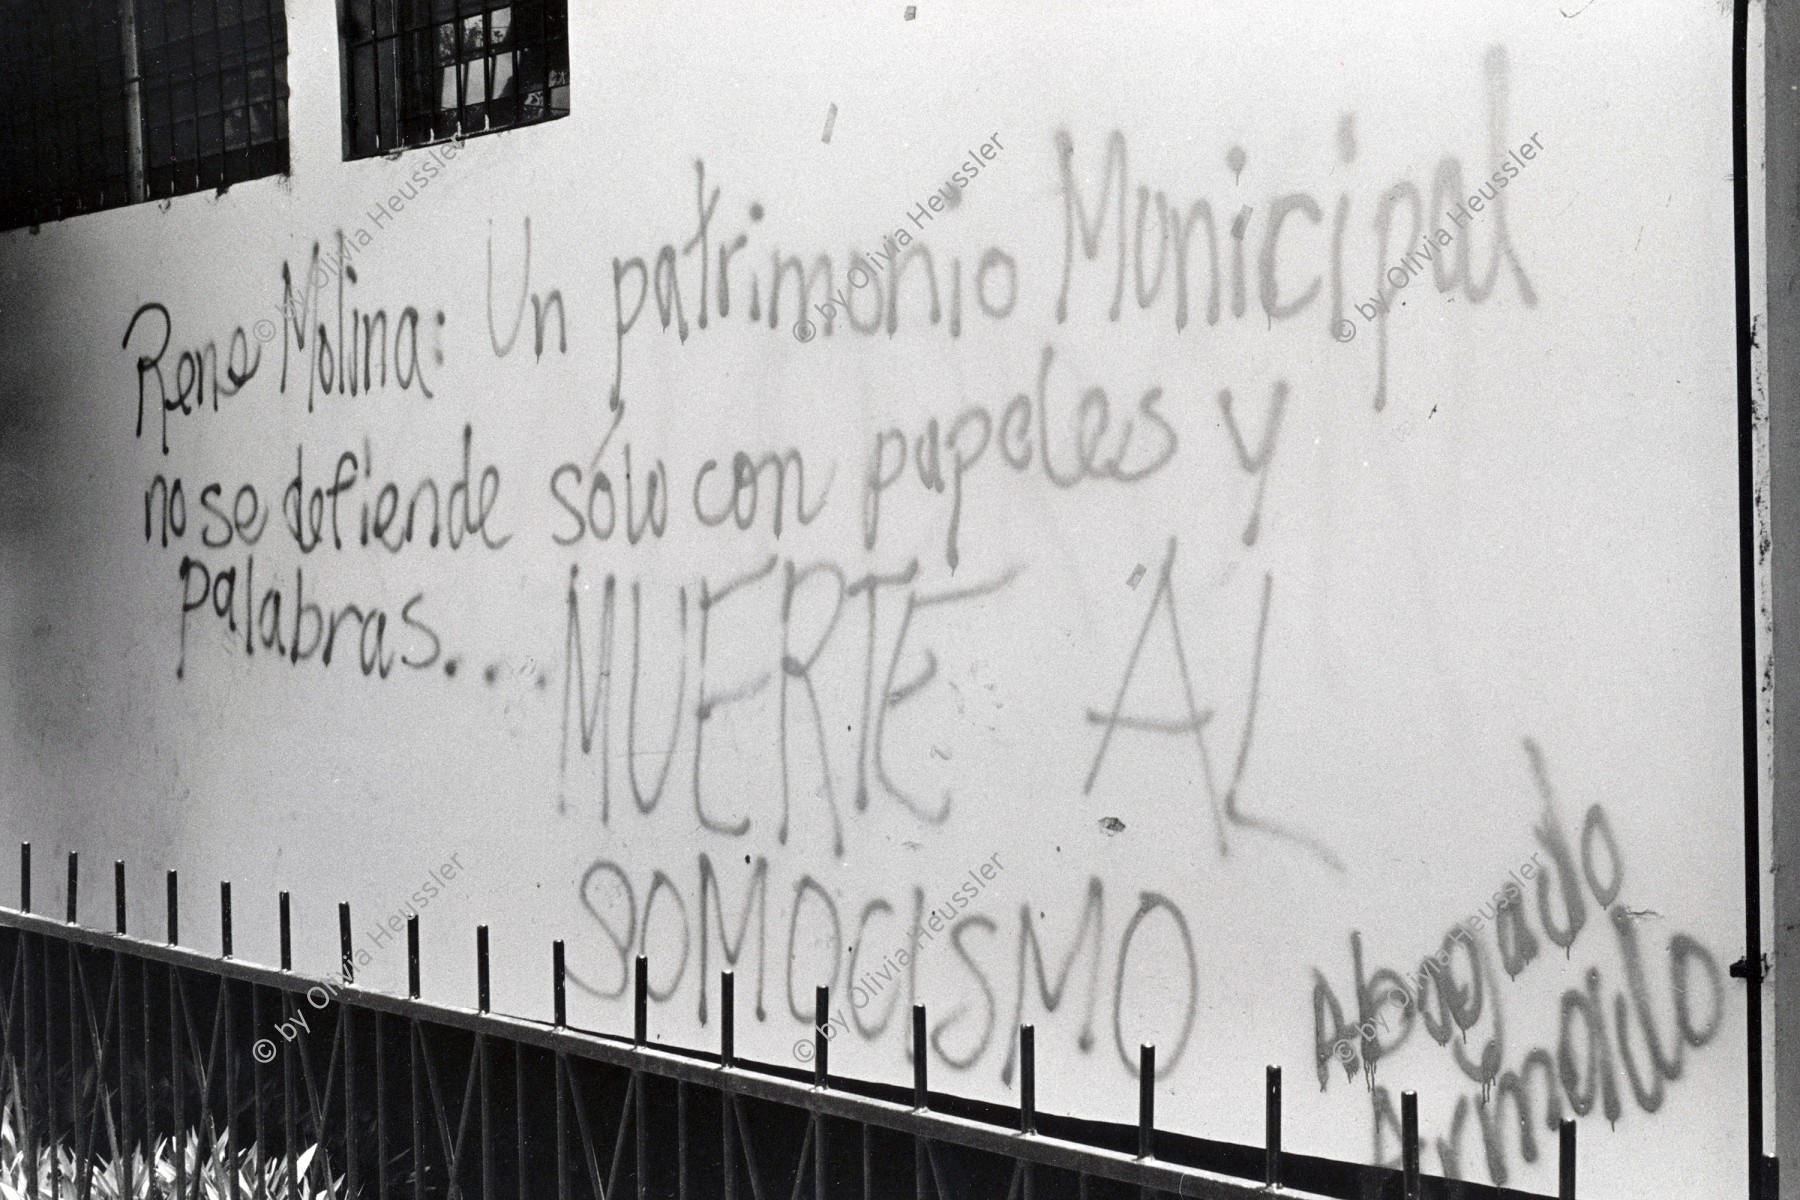 Rene Molina: Un patrimonio Municipal
no se defiende sólo con papeles y
palabras...
MUERTE AL
SOMOCISMO
Abogado
Armando
© by Olivia Heussler
© by Olivia Heussler
© by Olivia Heussler
© by Olivia Heussler
© by Olivia Heussler
© by Olivia Heussler